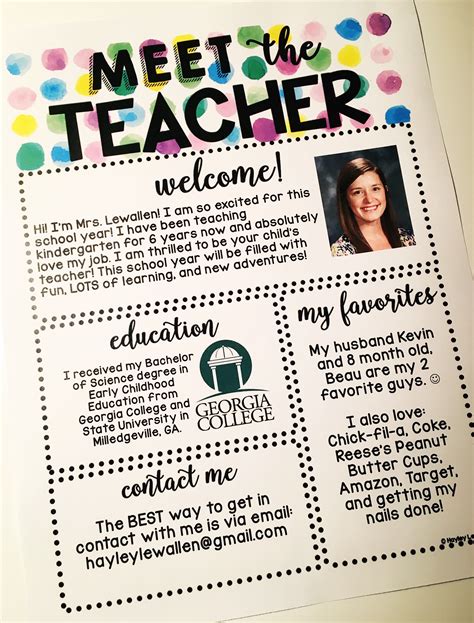 MEET the
TEACHER
welcome!
Hi! I'm Mrs. Lewallen! I am so excited for this
school year! I have been teaching
kindergarten for 6 years now and absolutely
love my job. I am thrilled to be your child's
teacher! This school year will be filled with
fun, LOTS of learning, and new adventures!
education
I received my Bachelor
of Science degree in
Early Childhood
Education from
Georgia College and
State University in
Milledgeville, GA.
GEORGIA
COLLEGE
my favorites
My husband Kevin
and 8 month old,
Beau are my 2
favorite guys. ☺
I also love:
Chick-fil-a, Coke,
Reese's Peanut
Butter Cups,
Amazon, Target,
and getting my
nails done!
contact me
The BEST way to get in
contact with me is via email:
hayleylewallen@gmail.com
© Hayley Le